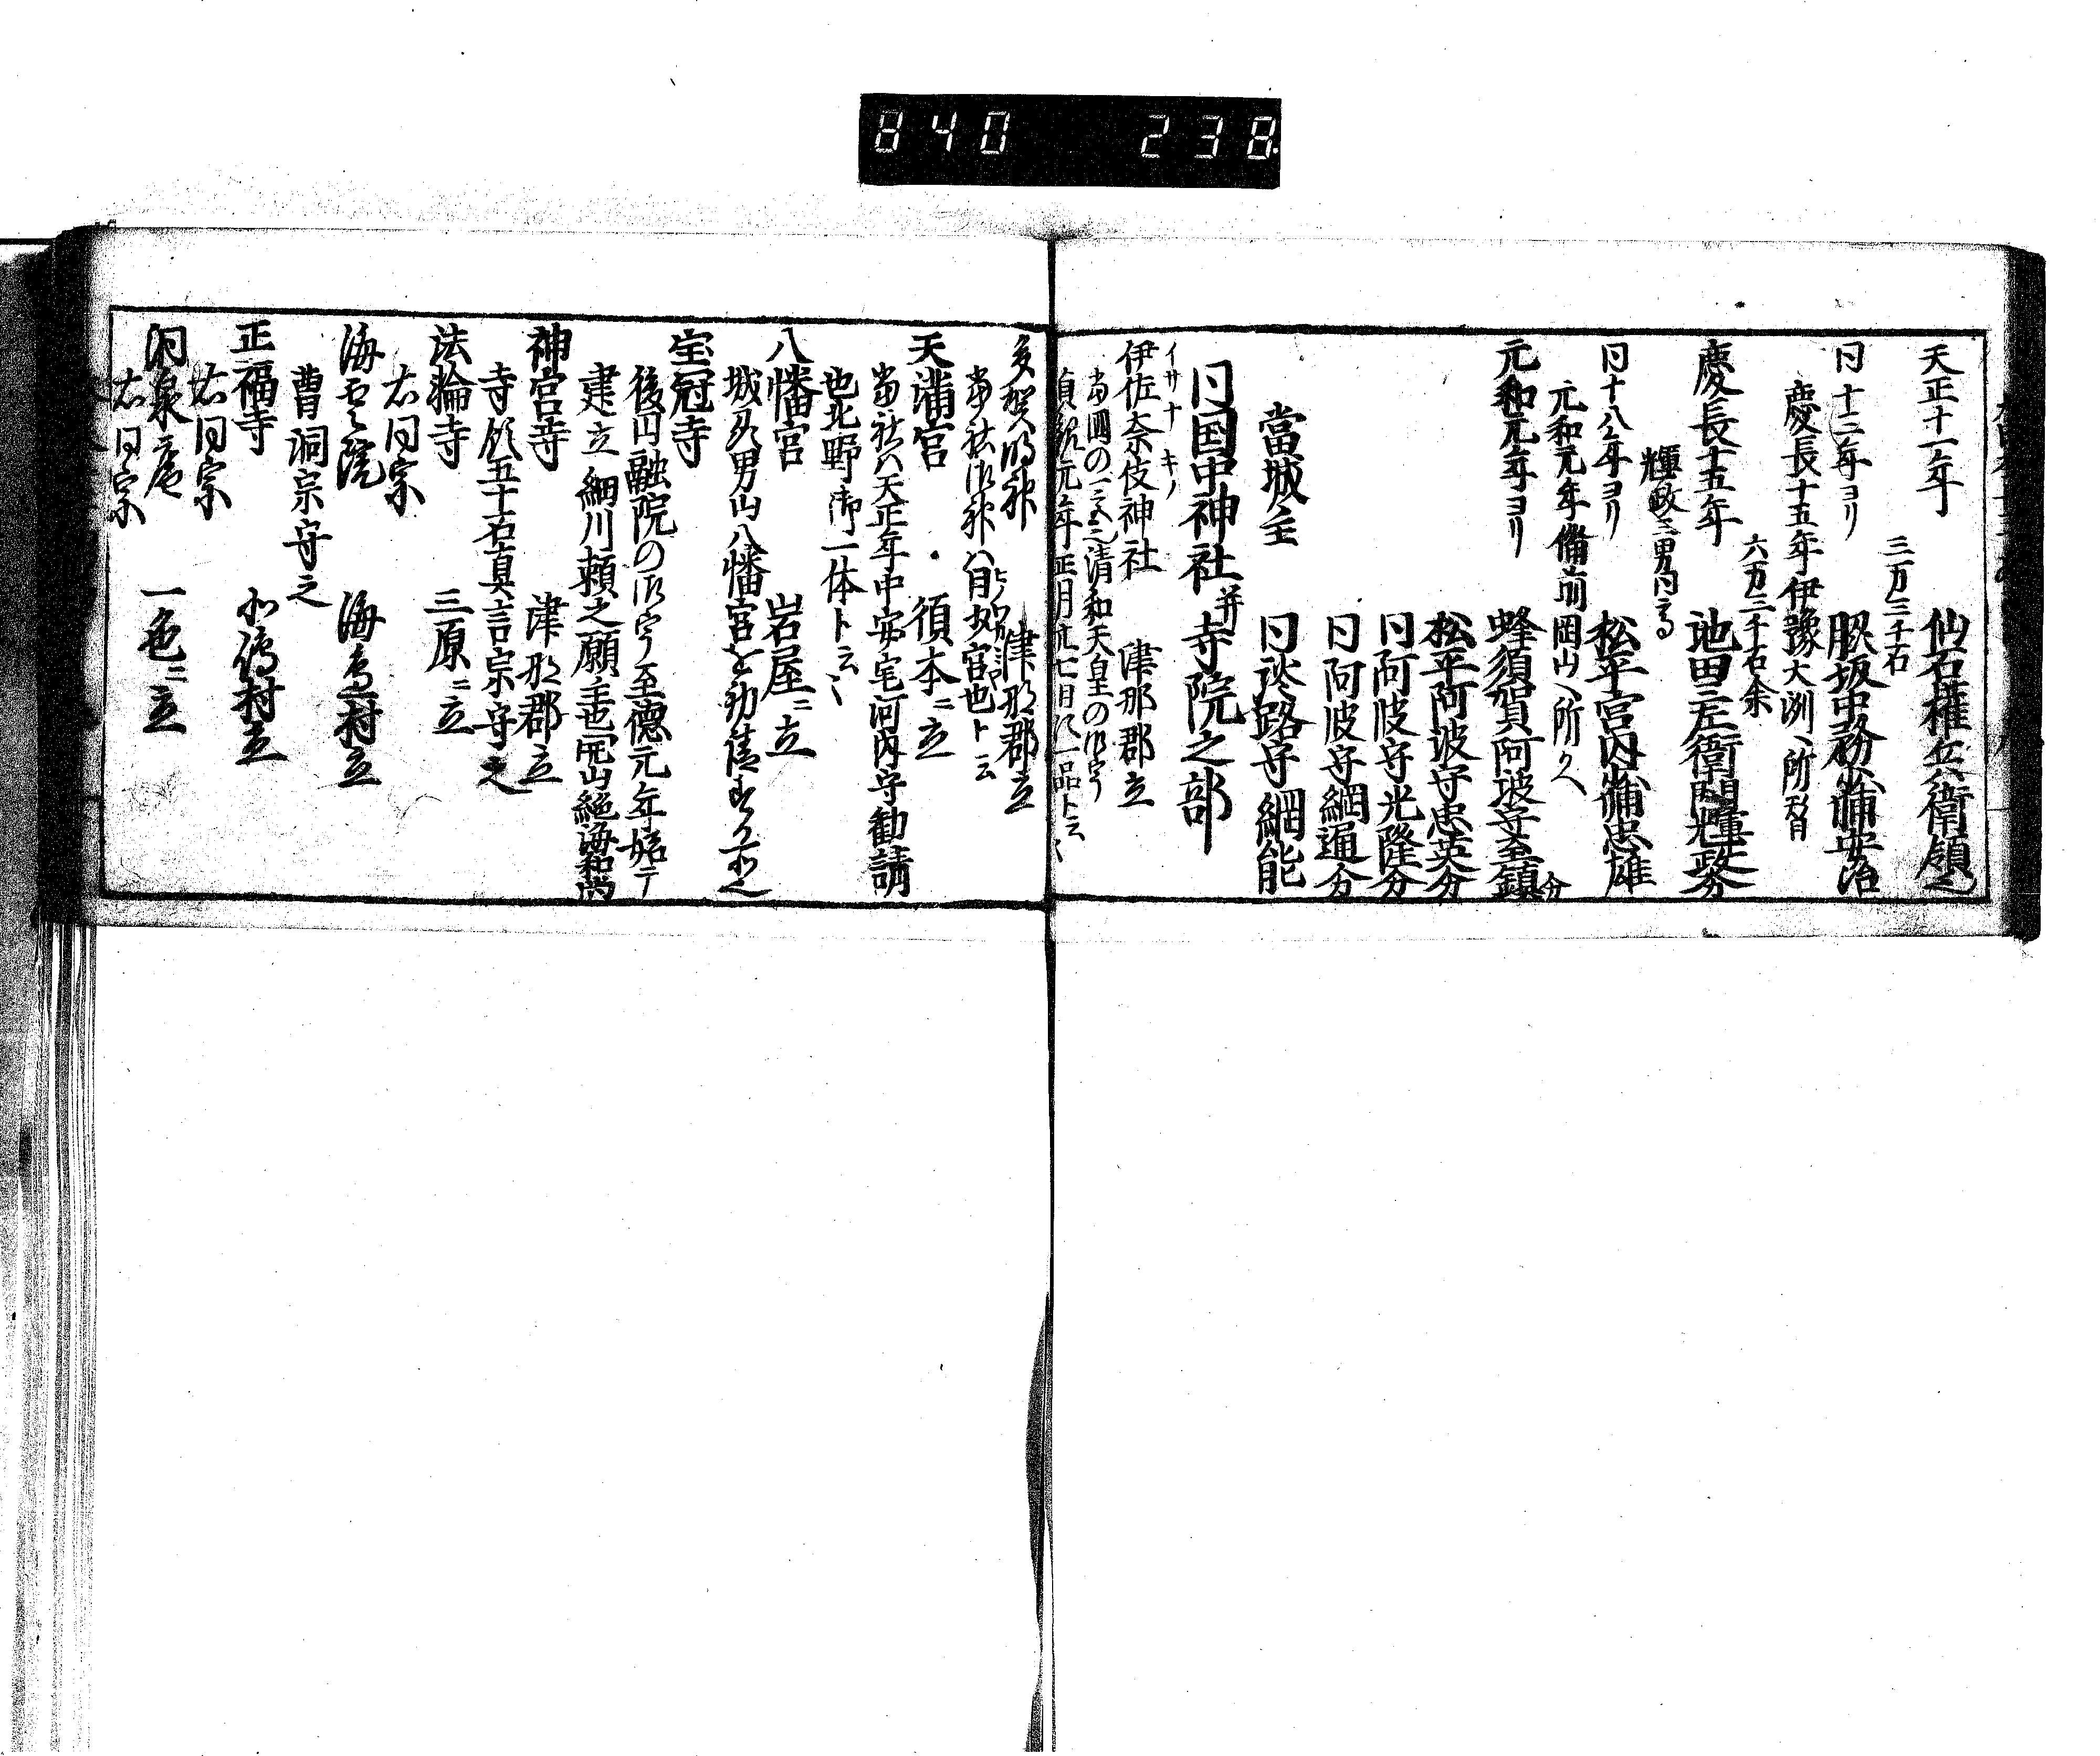 840 238
天正十一年 仙石権兵衛領之
三万三千石
同十三年ヨリ 脇坂中務少輔安治
慶長十五年伊豫大洲へ所替
六万三千石余
慶長十五年 池田三左衛門輝政分
輝政三男
同十八年ヨリ 松平宮内少輔忠雄
元和元年備前岡山へ所久
元和元年ヨリ 蜂須賀阿波守至鎮分
松平阿波守忠英分
同阿波守光隆分
同阿波守綱通分
當城主 同淡路守綱能
同国中神社并寺院之部
イサナキノ
伊佐奈伎神社 津那郡立
当國の一之宮之清和天皇の御宇
貞観元年正月廿七日ニ一品ト云〻
多賀明神 津那郡立
当社御神ハ日少宮也ト云
天満宮 須本ニ立
当社ハ天正年中安宅河内守勧請
也北野御一体ト云〻
八幡宮 岩屋ニ立
城刕男山八幡宮を勧請
宝冠寺
後円融院の御宇至徳元年始テ
建立細川頼之願主也開山絶海和尚
神宮寺 津那郡立
寺領五十石真言宗守之
法輪寺 三原ニ立
右同宗
海石之院 海村立
曹洞宗守之
正福寺 村立
右同宗
洞泉庵 一色ニ立
右同宗